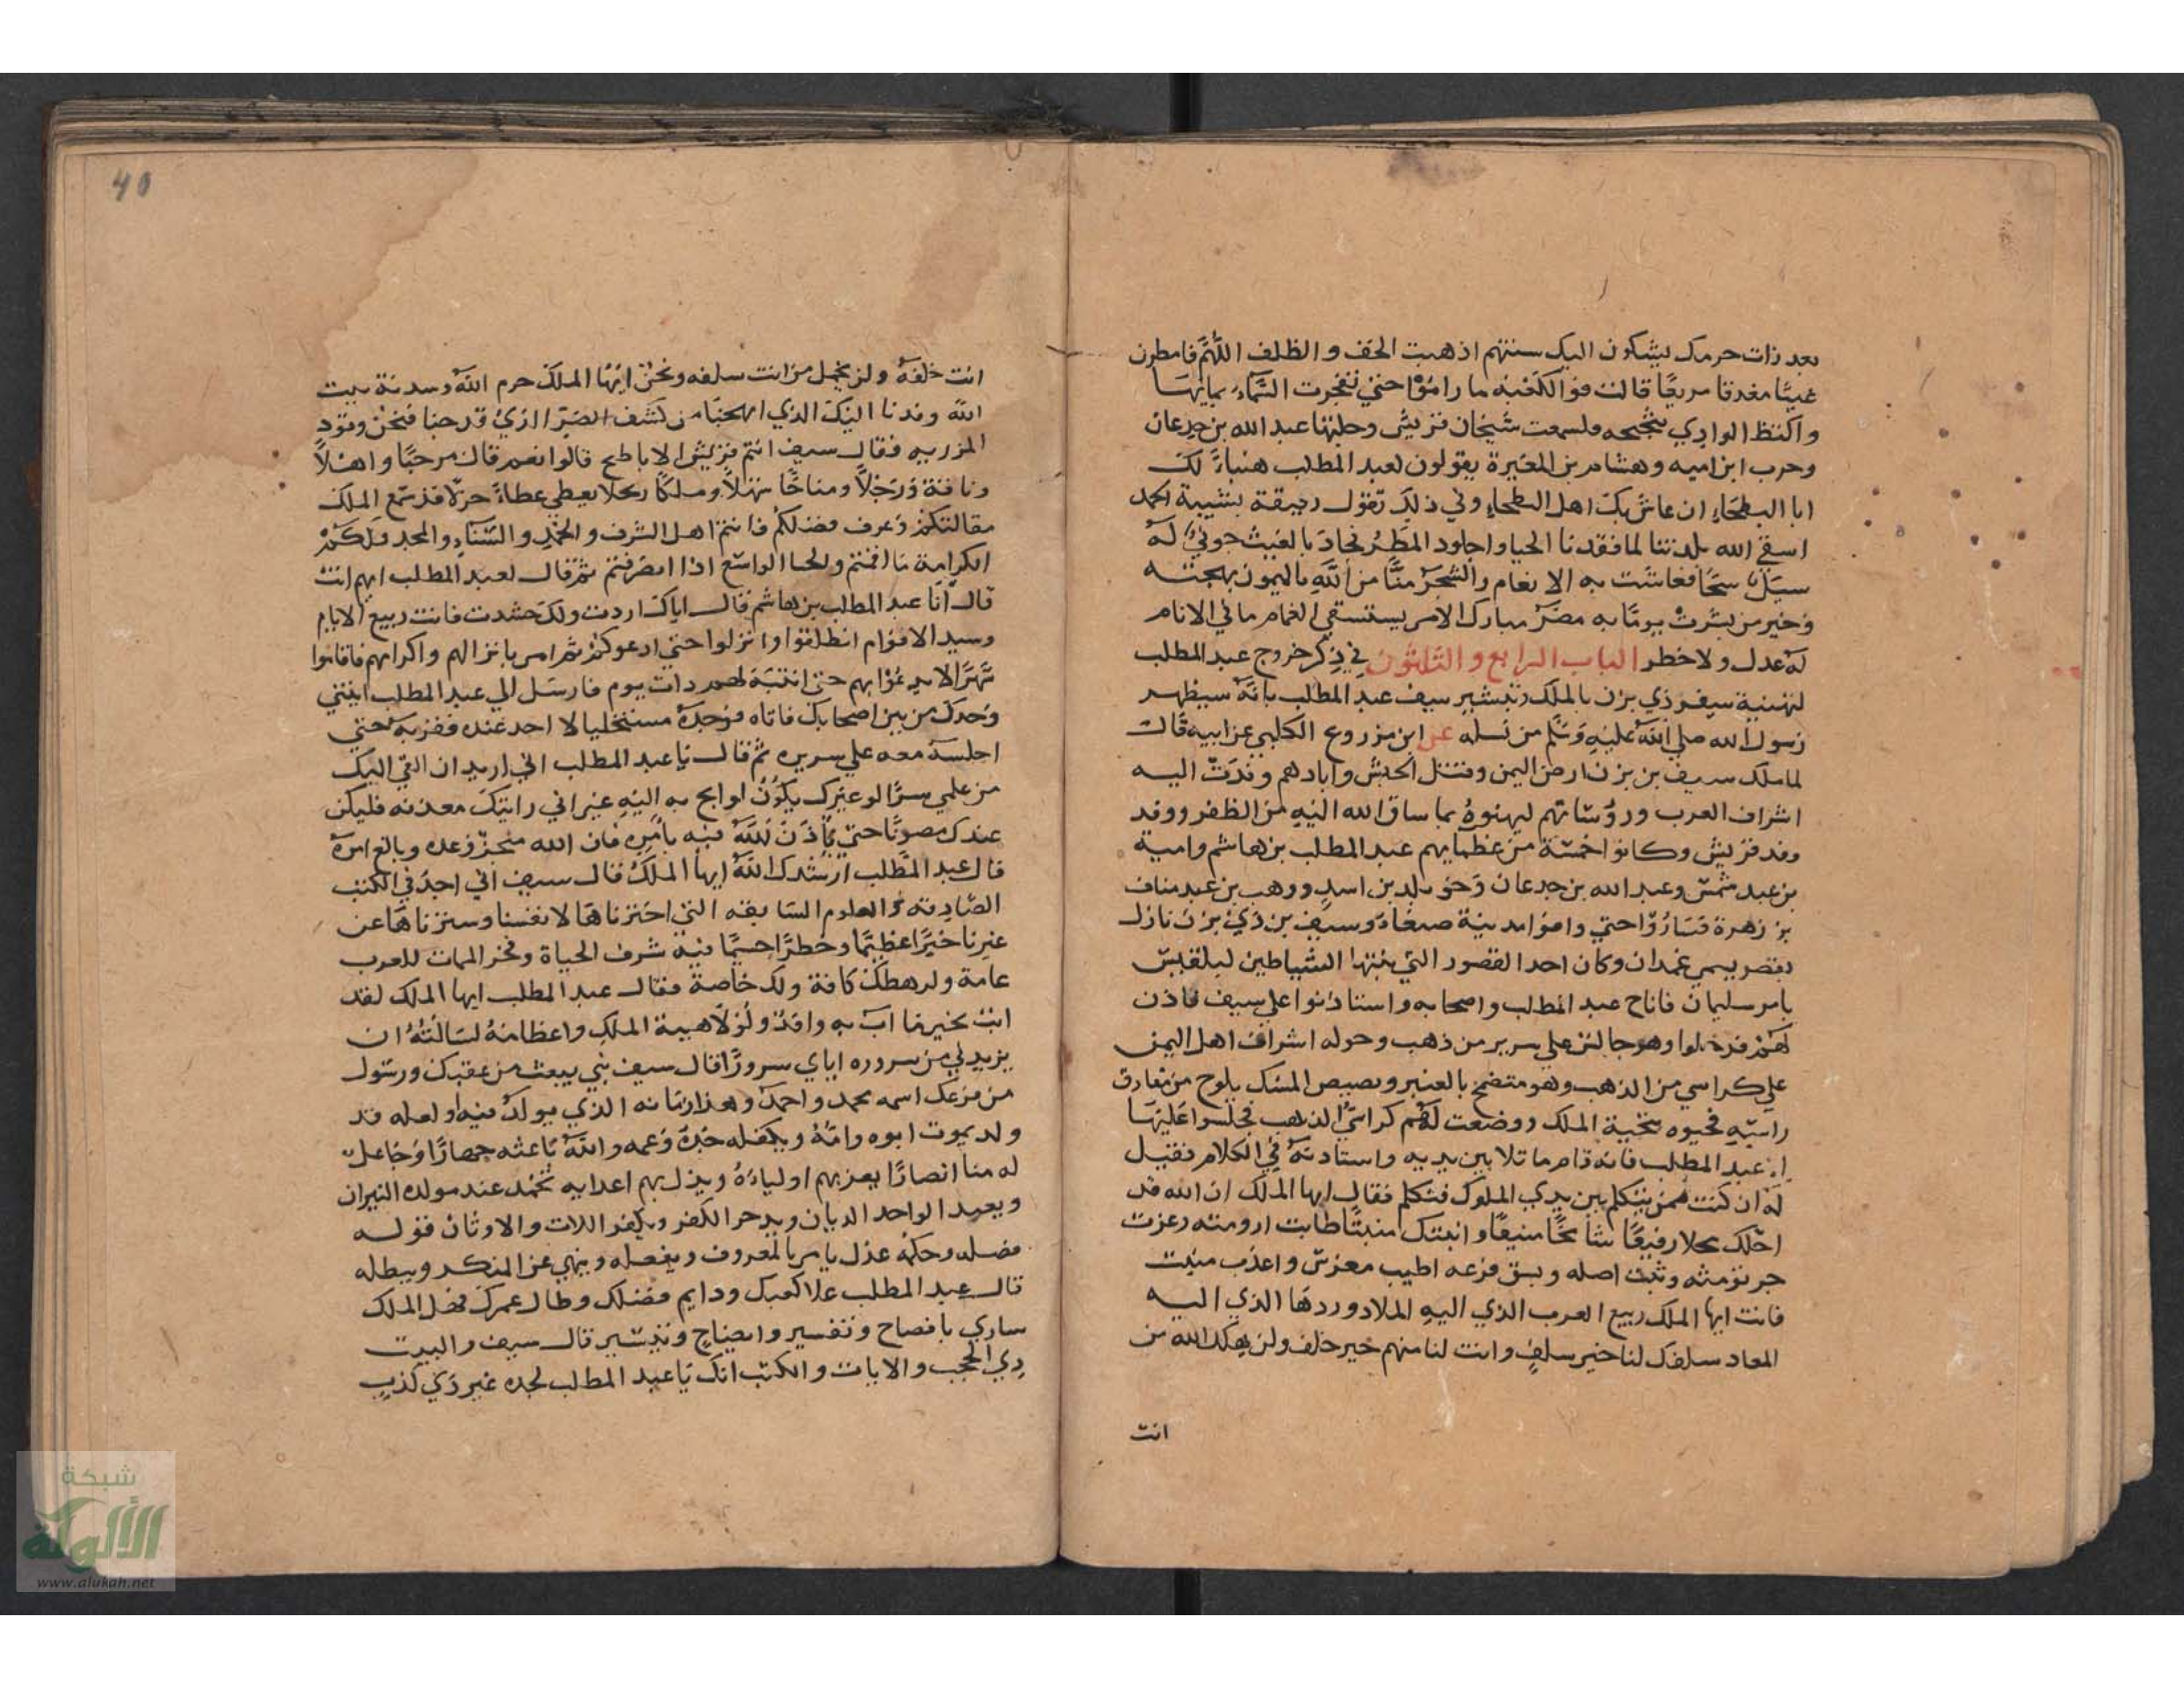 بعد ذات حرمك يشكون اليك سنتهم اذهبت الخف والظلف اللهم فامطرن
غيثا مغدقا مريعا قالت فو الكعبة ما راموا حتى تفجرت السماء بمايها
واكتظ الوادي بثجيجه ولسمعت شيخان قريش وجلتها عبد الله بن جدعان
وحرب ابن اميه وهشام بن المغيرة يقولون لعبد المطلب هنياء لك
ابا البطحاء ان عاش بك اهل البطحاء وفي ذلك تقول رقيقة بشيبة الحمد
اسقي الله بلدتنا لما فقدنا الحيا واجلود المطر فجاد بالغيث جوني له
سبل سحا فعاشت به الانعام والشجر منا من الله بالميمون بهجته
وخير من بشرت يوما به مضر مبارك الامر يستسقي الغمام ما في الانام
له عدل ولا خطر الباب الرابع والثلثون في ذكر خروج عبد المطلب
لتهنية سيف ذي يزن بالملك وتبشير سيف عبد المطلب بانه سيظهر
رسول الله صلي الله عليه وسلم من نسله عن ابن مزروع الكلبي عن ابيه قال
لما ملك سيف بن يزن ارض اليمن وقتل الحبش وابادهم وفدت اليه
اشراف العرب وروساتهم ليهنوه بما ساق الله اليه من الظفر ووفد
وفد قريش وكانوا خمسة من عظمايهم عبد المطلب بن هاشم وامية
بن عبد شمس وعبد الله بن جدعان وخويلد بن اسد ووهب بن عبد مناف
بن زهرة فساروا حتي وافوا مدينة صنعاء وسيف بن ذي يزن نازل
بقصر يسمي غمدان وكان احد القصور التي بنتها الشياطين لبلقيس
بامر سليمان فاناح عبد المطلب واصحابه واستاذنوا علي سيف فاذن
لهم فدخلوا وهو جالس علي سرير من ذهب وحوله اشراف اهل اليمن
علي كراسي من الذهب وهو متضمخ بالعنبر وبصيص المسك يلوح من مفارق
راسه فحيوه بتحية الملك ووضعت لهم كراسي الذهب فجلسوا عليها
الا عبد المطلب فانه قام ماثلا بين يديه واستاذنه في الكلام فقيل
له ان كنت ممن يتكلم بين يدي الملوك فتكلم فقال ايها الملك ان الله قد
احلك محلا رفيعا شامخا منيعا وانبتك منبتا طابت ارومته وعزت
جرثومته وثبت اصله وبسق فرعه اطيب مغرس واعذب منبت
فانت ايها الملك ربيع العرب الذي اليه الملاد ووردها الذي اليه
المعاد سلفك لنا خير سلف وانت لنا منهم خير خلف ولن يهلك الله من
انت
40
انت خلفه ولن يخمل من انت سلفه ونحن ايها الملك حرم الله وسدنة بيت
الله وفدنا اليك الذي ابهجنا من كشف الضر الذي قد حنا فنحن وفود
المزريه فقال سيف انتم قريش الاباطح قالوا نعم قال مرحبا واهلا
وناقة ورجلا ومناخا سهلا وملكا ربحلا يعطي عطاء جزلا قد سمع الملك
مقالتكم وعرف فضلكم فانتم اهل الشرف والحمد والثناء والمجد فلكم
الكرامة ما اقمتم والحبا الواسع اذا انصرفتم ثم قال لعبد المطلب ايهم انت
قال انا عبد المطلب بن هاشم قال اياك اردت ولك حشدت فانت ربيع الانام
وسيد الاقوام انطلقوا وانزلوا حتي ادعو بكم ثم امر بانزالهم واكرامهم فاقاموا
شهرا لا يدعوا بهم حتى انتبه لهم ذات يوم فارسل الي عبد المطلب ايتني
وحدك من بين اصحابك فاتاه فوجده مستخليا لا احد عنده فقربه حتي
اجلسه معه علي سريره ثم قال يا عبد المطلب اني اريد ان القي اليك
من علمي سرا لو غيرك يكون لم ابح به اليه غير اني رايتك معدنه فليكن
عندك مصونا حتي ياذن الله فيه بامره فان الله منجز وعده وبالغ امره
قال عبد المطلب ارشدك الله ايها الملك قال سيف اني اجد في الكتب
الصادقه والعلوم السابقه التي اختزناها لانفسنا وسترناها عن
غيرنا خيرا عظيما وخطرا جسيما فيه شرف الحياة وفخر الممات للعرب
عامة ولرهطك كافة ولك خاصة فقال عبد المطلب ايها الملك لقد
ابت بخير ما اب به وافد ولولا هيبة الملك واعظامه لسالته ان
يزيدني من سروره اياي سرورا قال سيف نبي يبعث من عقبك ورسول
من فرعك اسمه محمد واحمد وهذا زمانه الذي يولد فيه ولعله قد
ولد يموت ابوه وامه ويكفله جده وعمه والله باعثه جهارا وجاعل
له منا انصارا يعز بهم اولياءه ويذل بهم اعدايه تخمد عند مولده النيران
ويعبد الواحد الديان ويدحر الكفر ويكفر اللات والاوثان قوله
فصل وحكمه عدل يامر بالمعروف ويفعله وينهي عن المنكر ويبطله
قال عبد المطلب علا كعبك ودايم فضلك وطال عمرك فهل الملك
ساري بافصاح وتفسير وايضاح وتبشير قال سيف والبيت
ذي الحجب والايات والكتب انك يا عبد المطلب لجده غير ذي كذب
شبكة
الألوكة
www.alukah.net